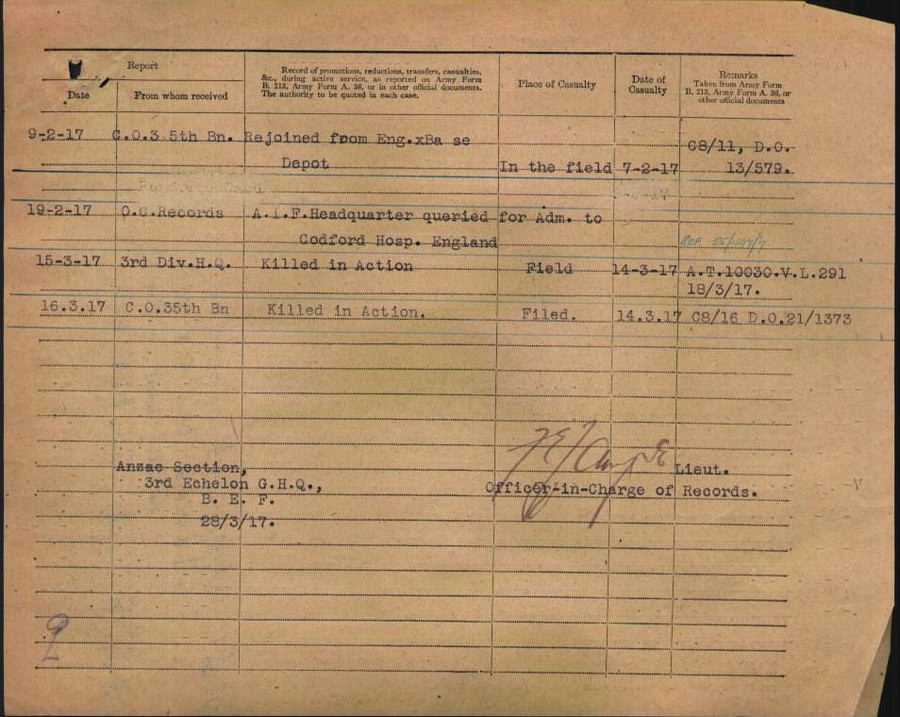 Report
Date
From whom received
Record of promotions, reductions, transfers, casualties,
&c., during active service, as reported on Army Form
B. 213, Army Form A. 36, or in other official documents.
The authority to be quoted in each case.
Place of Casualty
Date of
Casualty
Remarks
Taken from Army Form
B. 213, Army Form A. 36, or
other official documents
9-2-17 C.O.3 5th Bn. Rejoined from Eng.xBa se
C8/11, D.O.
Depot In the field 7-2-17 13/579.
19-2-17 O.C.Records A.I.F.Headquarter queried for Adm. to
Codford Hosp. England
15-3-17 3rd Div.H.Q. Killed in Action Field 14-3-17 A.T.10030.V.L.291
18/3/17.
16.3.17 C.O.35th Bn Killed in Action. Filed. 14.3.17 C8/16 D.O.21/1373
Anzac Section, Lieut.
3rd Echelon G.H.Q., Officer-in-Charge of Records.
B. E. F.
28/3/17.